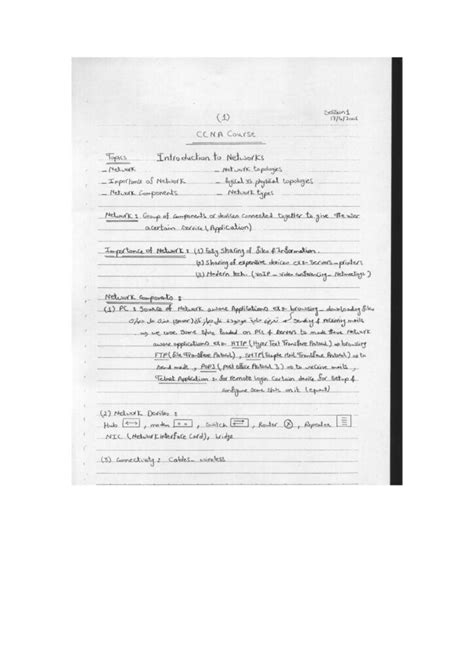 (1)
Session 1
CCNA Course
Topics Introduction to Networks
— Network — Network topologies
— Importance of Network — logical vs physical topologies
— Network Components — Network types
Network : Group of Components or devices Connected together to give the user
a certain service (Application)
Importance of Network : (1) Easy sharing of files & information.
(2) Sharing of expensive devices exs- servers - printers
(3) Modern tech. (VoIP - video conferencing -
Network Components :
(1) PC : Source of Network aware Applications exs- browsing - downloading files
sending & receiving mails
→ we use Some loaded on PCs & Servers to made these network
aware applications exs- HTTP (Hyper Text Transfere Protocol) ⇒ browsing
FTP (File Transfere Protocol), SMTP (Simple Mail Transfere Protocol) ⇒ to
send mails, POP3 (Post office Protocol 3) ⇒ to receive mails,
Telnet Application : for remote login Certain device for Setup &
Configure some on it
(2) Network Devices :
Hub , modem , Switch , Router , Repeater
NIC (Network interface Card), bridge
(3) Connectivity : Cables - wireless